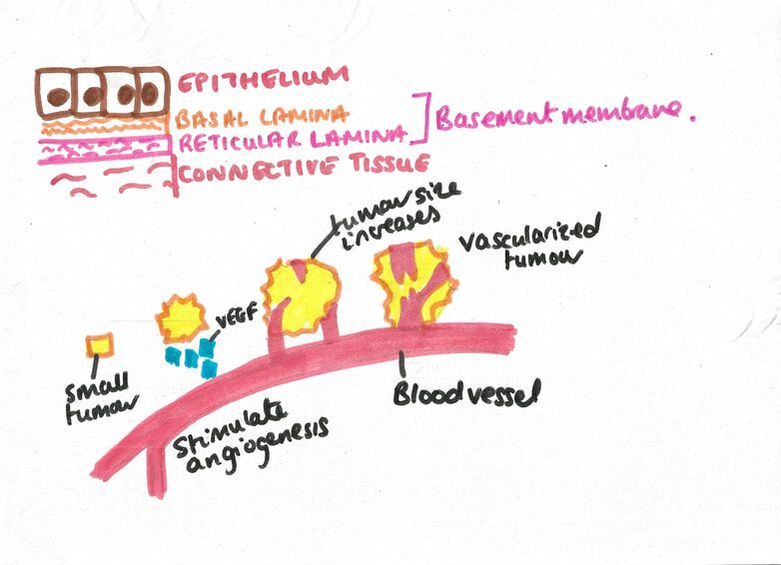 EPITHELIUM
BASAL LAMINA
RETICULAR LAMINA
Basement membrane.
CONNECTIVE TISSUE
tumour size
increases
vascularized
tumour
VEGF
small
tumour
Stimulate
angiogenesis
Blood vessel